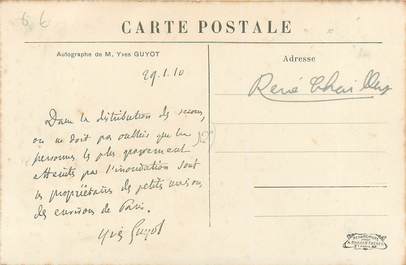 6 €
CARTE POSTALE
Autographe de M. Yves GUYOT
29.1.10
Dans la distribution des secours,
on ne doit pas oublier que les
personnes les plus gravement
atteints par l'inondation sont
les propriétaires des petites maisons
des environs de Paris.
Yves Guyot
Adresse
René